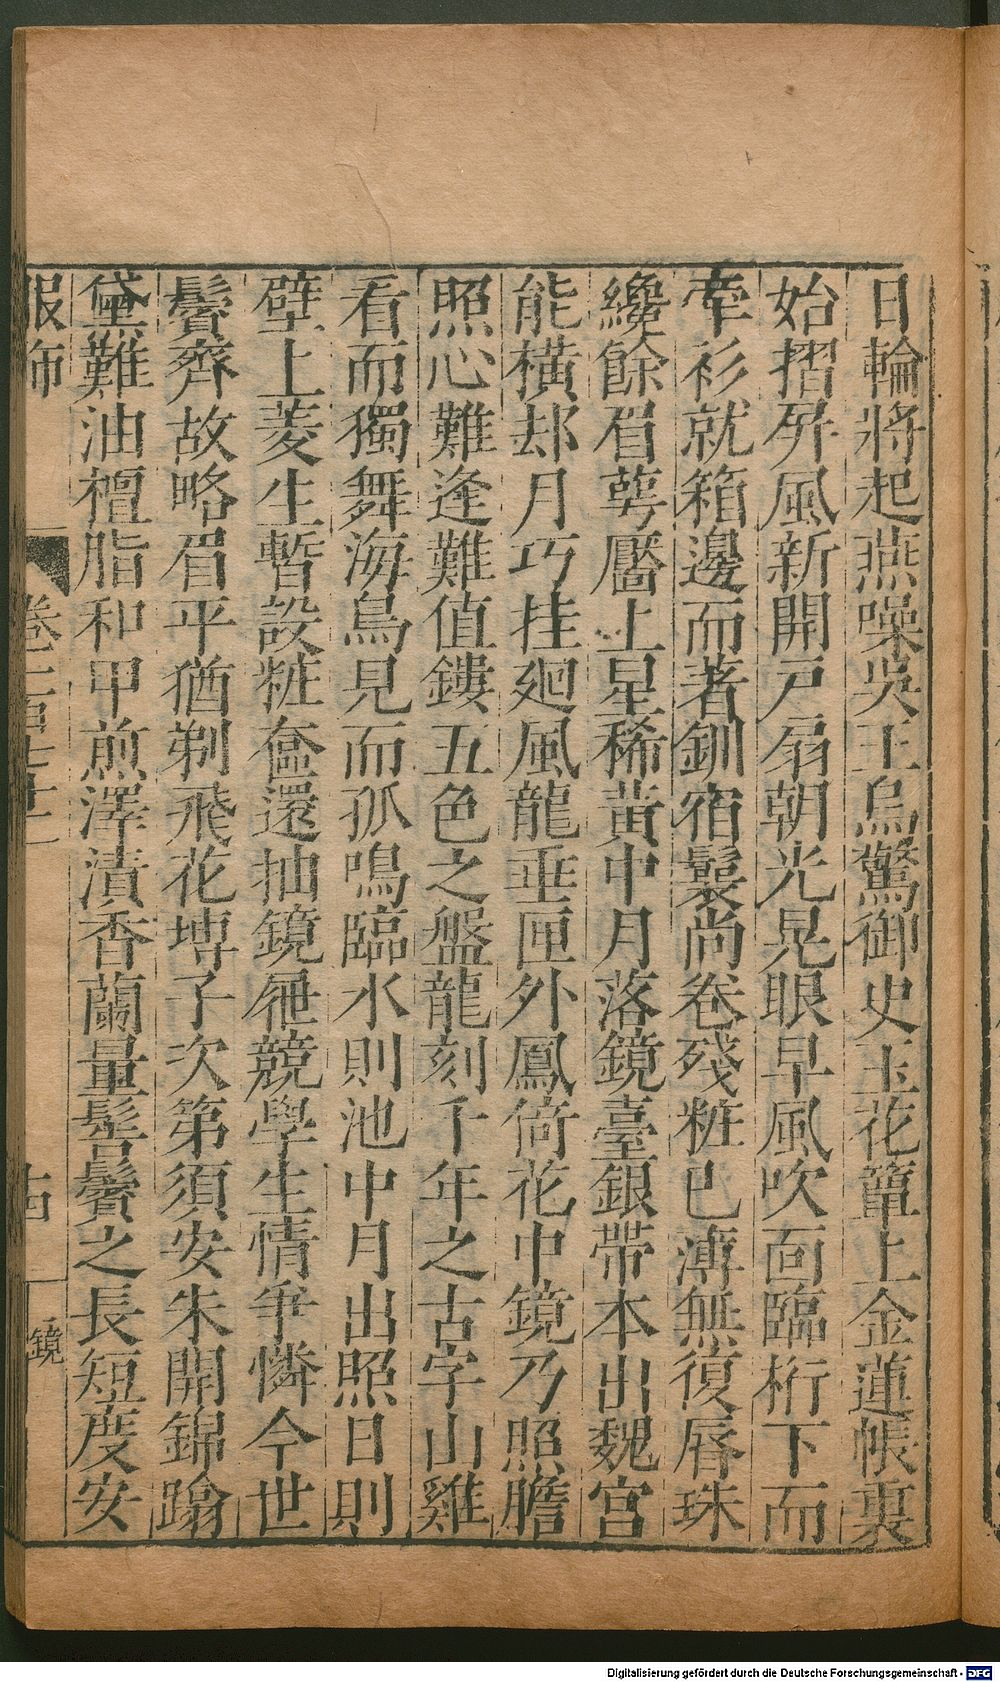 日輪將起燕噪吳王烏驚御史玉花簟上金蓮帳裏
始摺屛風新開戸扇朝光晃眼早風吹面臨桁下而
牽衫就箱邊而著釧宿鬟尚卷殘粧已薄無復唇珠
纔餘眉萼靨上星稀黄中月落鏡臺銀帶本出魏宮
能橫却月巧挂廻風龍垂匣外鳳倚花中鏡乃照膽
照心難逢難值鏤五色之盤龍刻千年之古字山雞
看而獨舞海鳥見而孤鳴臨水則池中月出照日則
壁上菱生暫設粧奩還抽鏡屜競學生情爭憐今世
鬢齊故略眉平猶剃飛花塼子次第須安朱開錦蹹
黛難油檀脂和甲煎澤漬香蘭量髻鬢之長短度安
服飾
卷二百七十二
十四
鏡
Digitalisierung gefördert durch die Deutsche Forschungsgemeinschaft - DFG